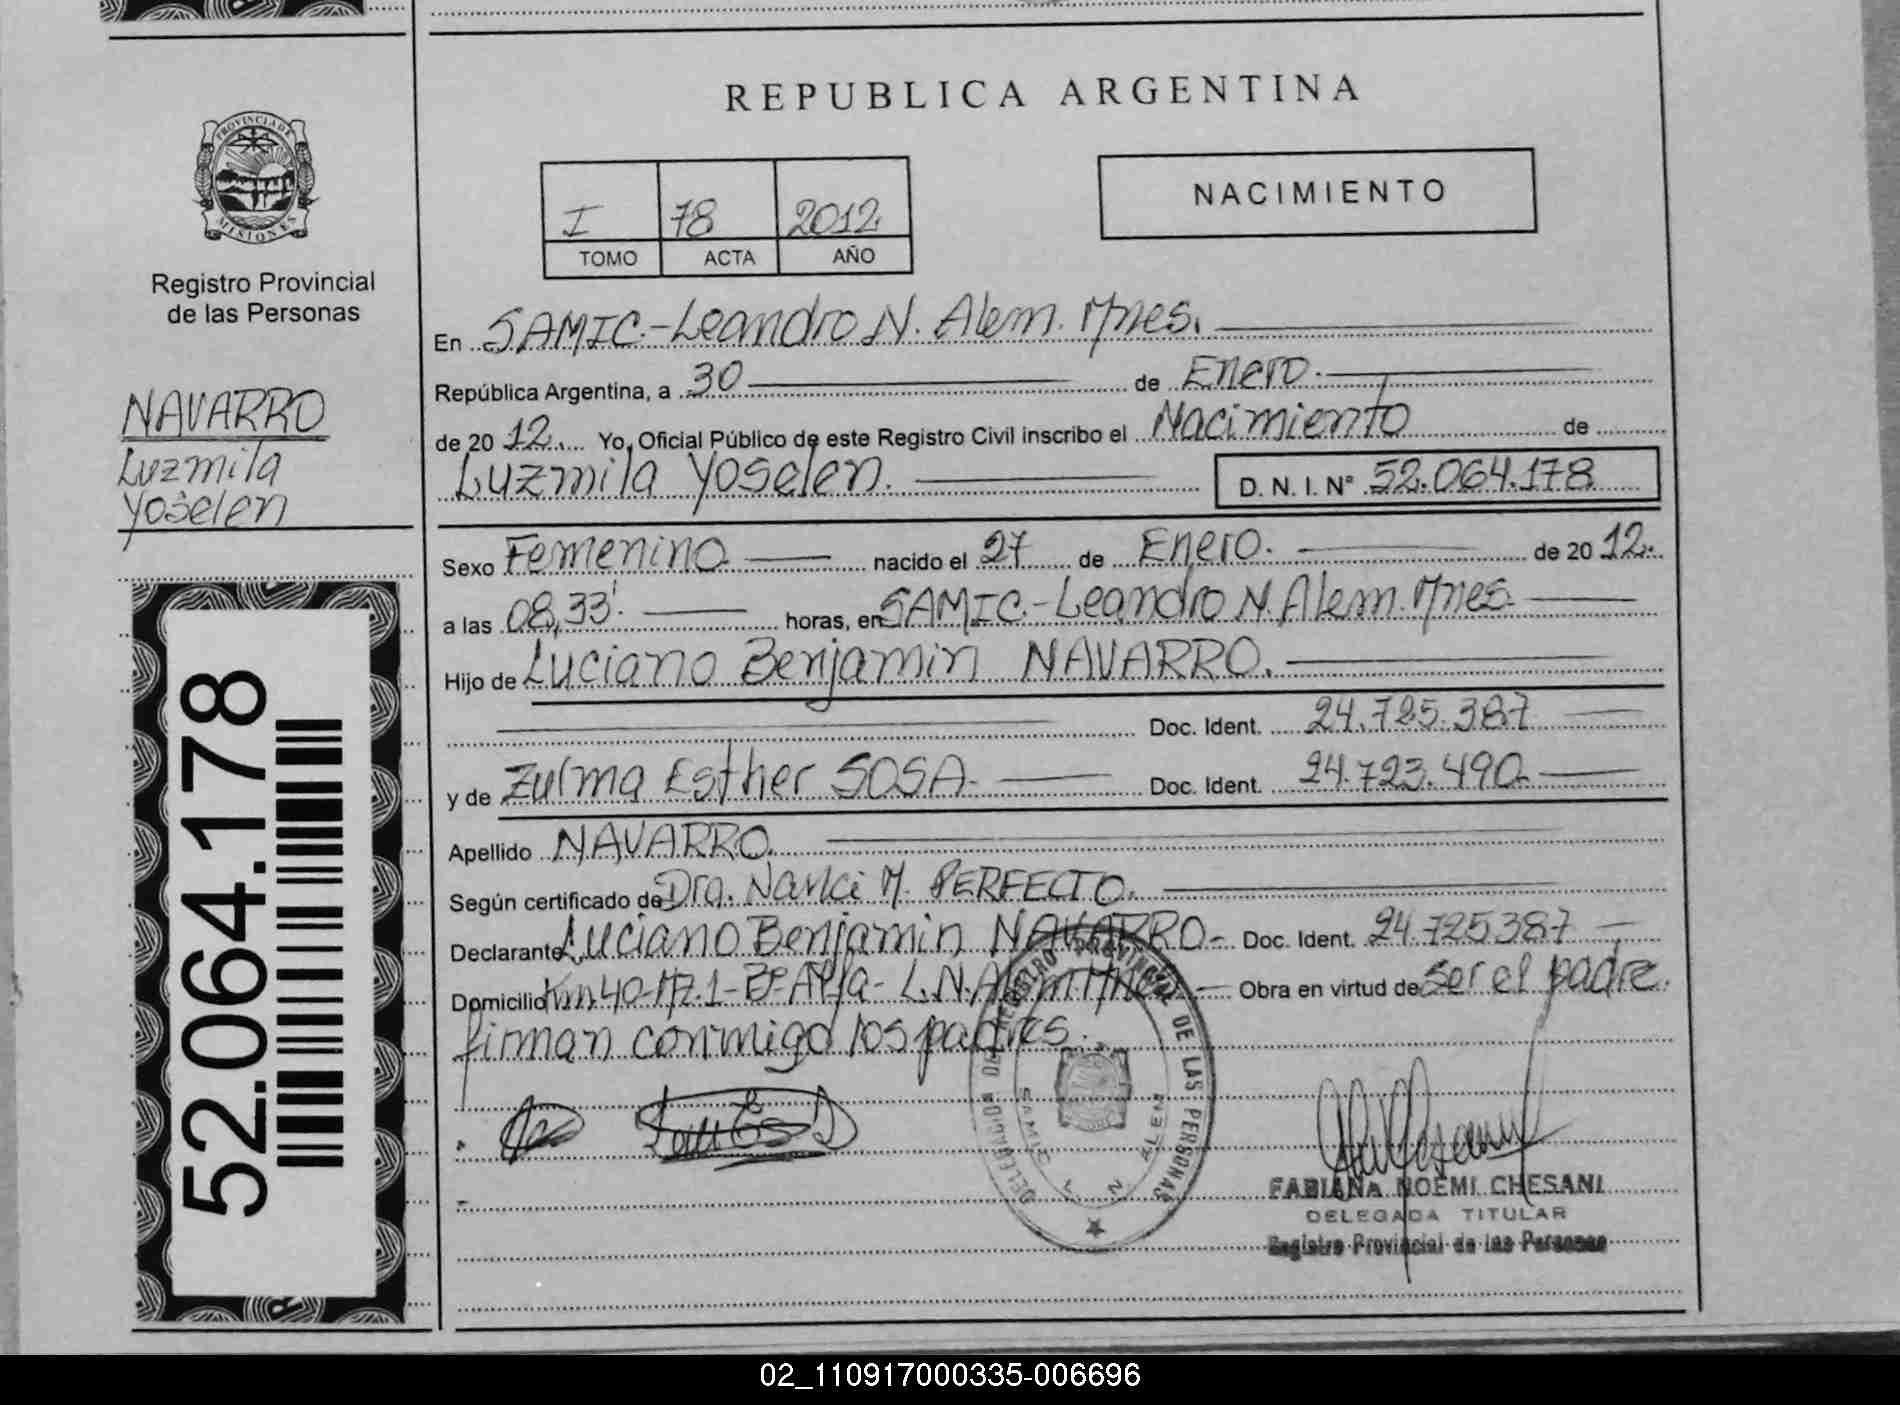 REPUBLICA ARGENTINA
PROVINCIA DE
MISIONES
Registro Provincial
de las Personas
NAVARRO
Luzmila
Yoselen
52.064.178
I 78 2012
TOMO ACTA AÑO
NACIMIENTO
En SAMIC.-Leandro N. Alem. Mnes.
República Argentina, a 30 de Enero.
de 20 12. Yo, Oficial Público de este Registro Civil inscribo el Nacimiento de
Luzmila Yoselen. D. N. I. N° 52.064.178
Sexo Femenino nacido el 27 de Enero. de 20 12.
a las 08,33'. horas, en SAMIC.-Leandro N. Alem. Mnes.
Hijo de Luciano Benjamin NAVARRO.
Doc. Ident. 24.725.387
y de Zulma Esther SOSA. Doc. Ident. 24.723.490.
Apellido NAVARRO.
Según certificado de Dra. M. PERFECTO.
Declarante Luciano Benjamin NAVARRO- Doc. Ident. 24.725387
Domicilio Km 40- L.N. Alem Mnes Obra en virtud de ser el padre.
firman conmigo los padres.
REGISTRO PROVINCIAL DE LAS PERSONAS
SAMIC L. N. ALEM
FABIANA NOEMI CHESANI
DELEGADA TITULAR
Registro Provincial de las Personas
02_110917000335-006696